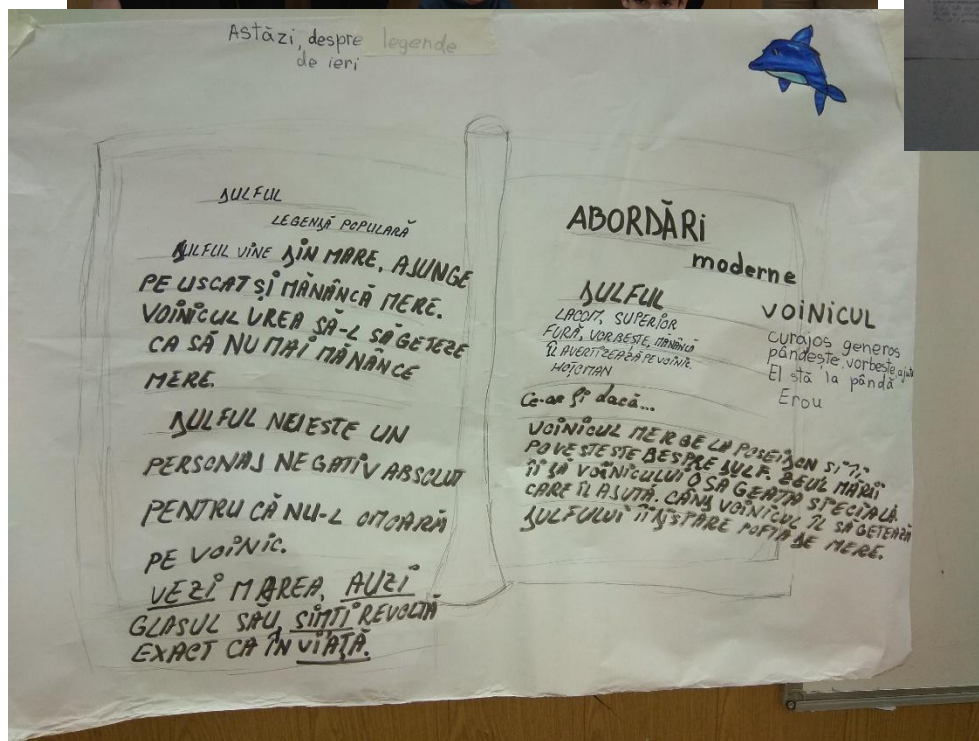 Astăzi, despre legende
de ieri
DULFUL
LEGENDĂ POPULARĂ
DULFUL VINE DIN MARE, AJUNGE
PE USCAT ȘI MĂNÂNCĂ MERE.
VOINICUL VREA SĂ-L SĂGETEZE
CA SĂ NU MAI MĂNÂNCE
MERE.
DULFUL NU ESTE UN
PERSONAJ NEGATIV ABSOLUT
PENTRU CĂ NU-L OMOARĂ
PE VOINIC.
VEZI MAREA, AUZI
GLASUL SAU, SIMȚI REVOLTĂ
EXACT CA ÎN VIAȚĂ.
ABORDĂRI
moderne
DULFUL
LACOM, SUPERIOR
FURĂ, VORBEȘTE, MĂNÂNCĂ
ÎL AVERTIZEAZĂ PE VOINIC.
HOȚOMAN
VOINICUL
curajos generos
pândește, vorbește, ajută
El stă la pândă
Erou
Ce-ar fi dacă...
VOINICUL MERGE LA POSEIDON SI ÎI
POVESTESTE DESPRE DULF. ZEUL MĂRII
ÎI DĂ VOINICULUI O SAGEATĂ SPECIALĂ
CARE ÎL AJUTĂ. CÂND VOINICUL ÎL SĂGETEAZĂ
DULFULUI ÎI DISPARE POFTA DE MERE.